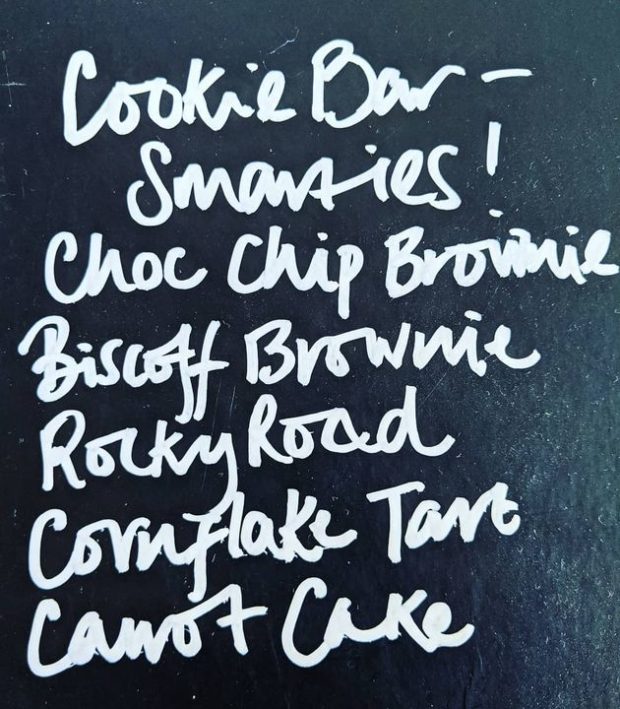 Cookie Bar -
Smarties!
Choc Chip Brownie
Biscoff Brownie
Rocky Road
Cornflake Tart
Carrot Cake